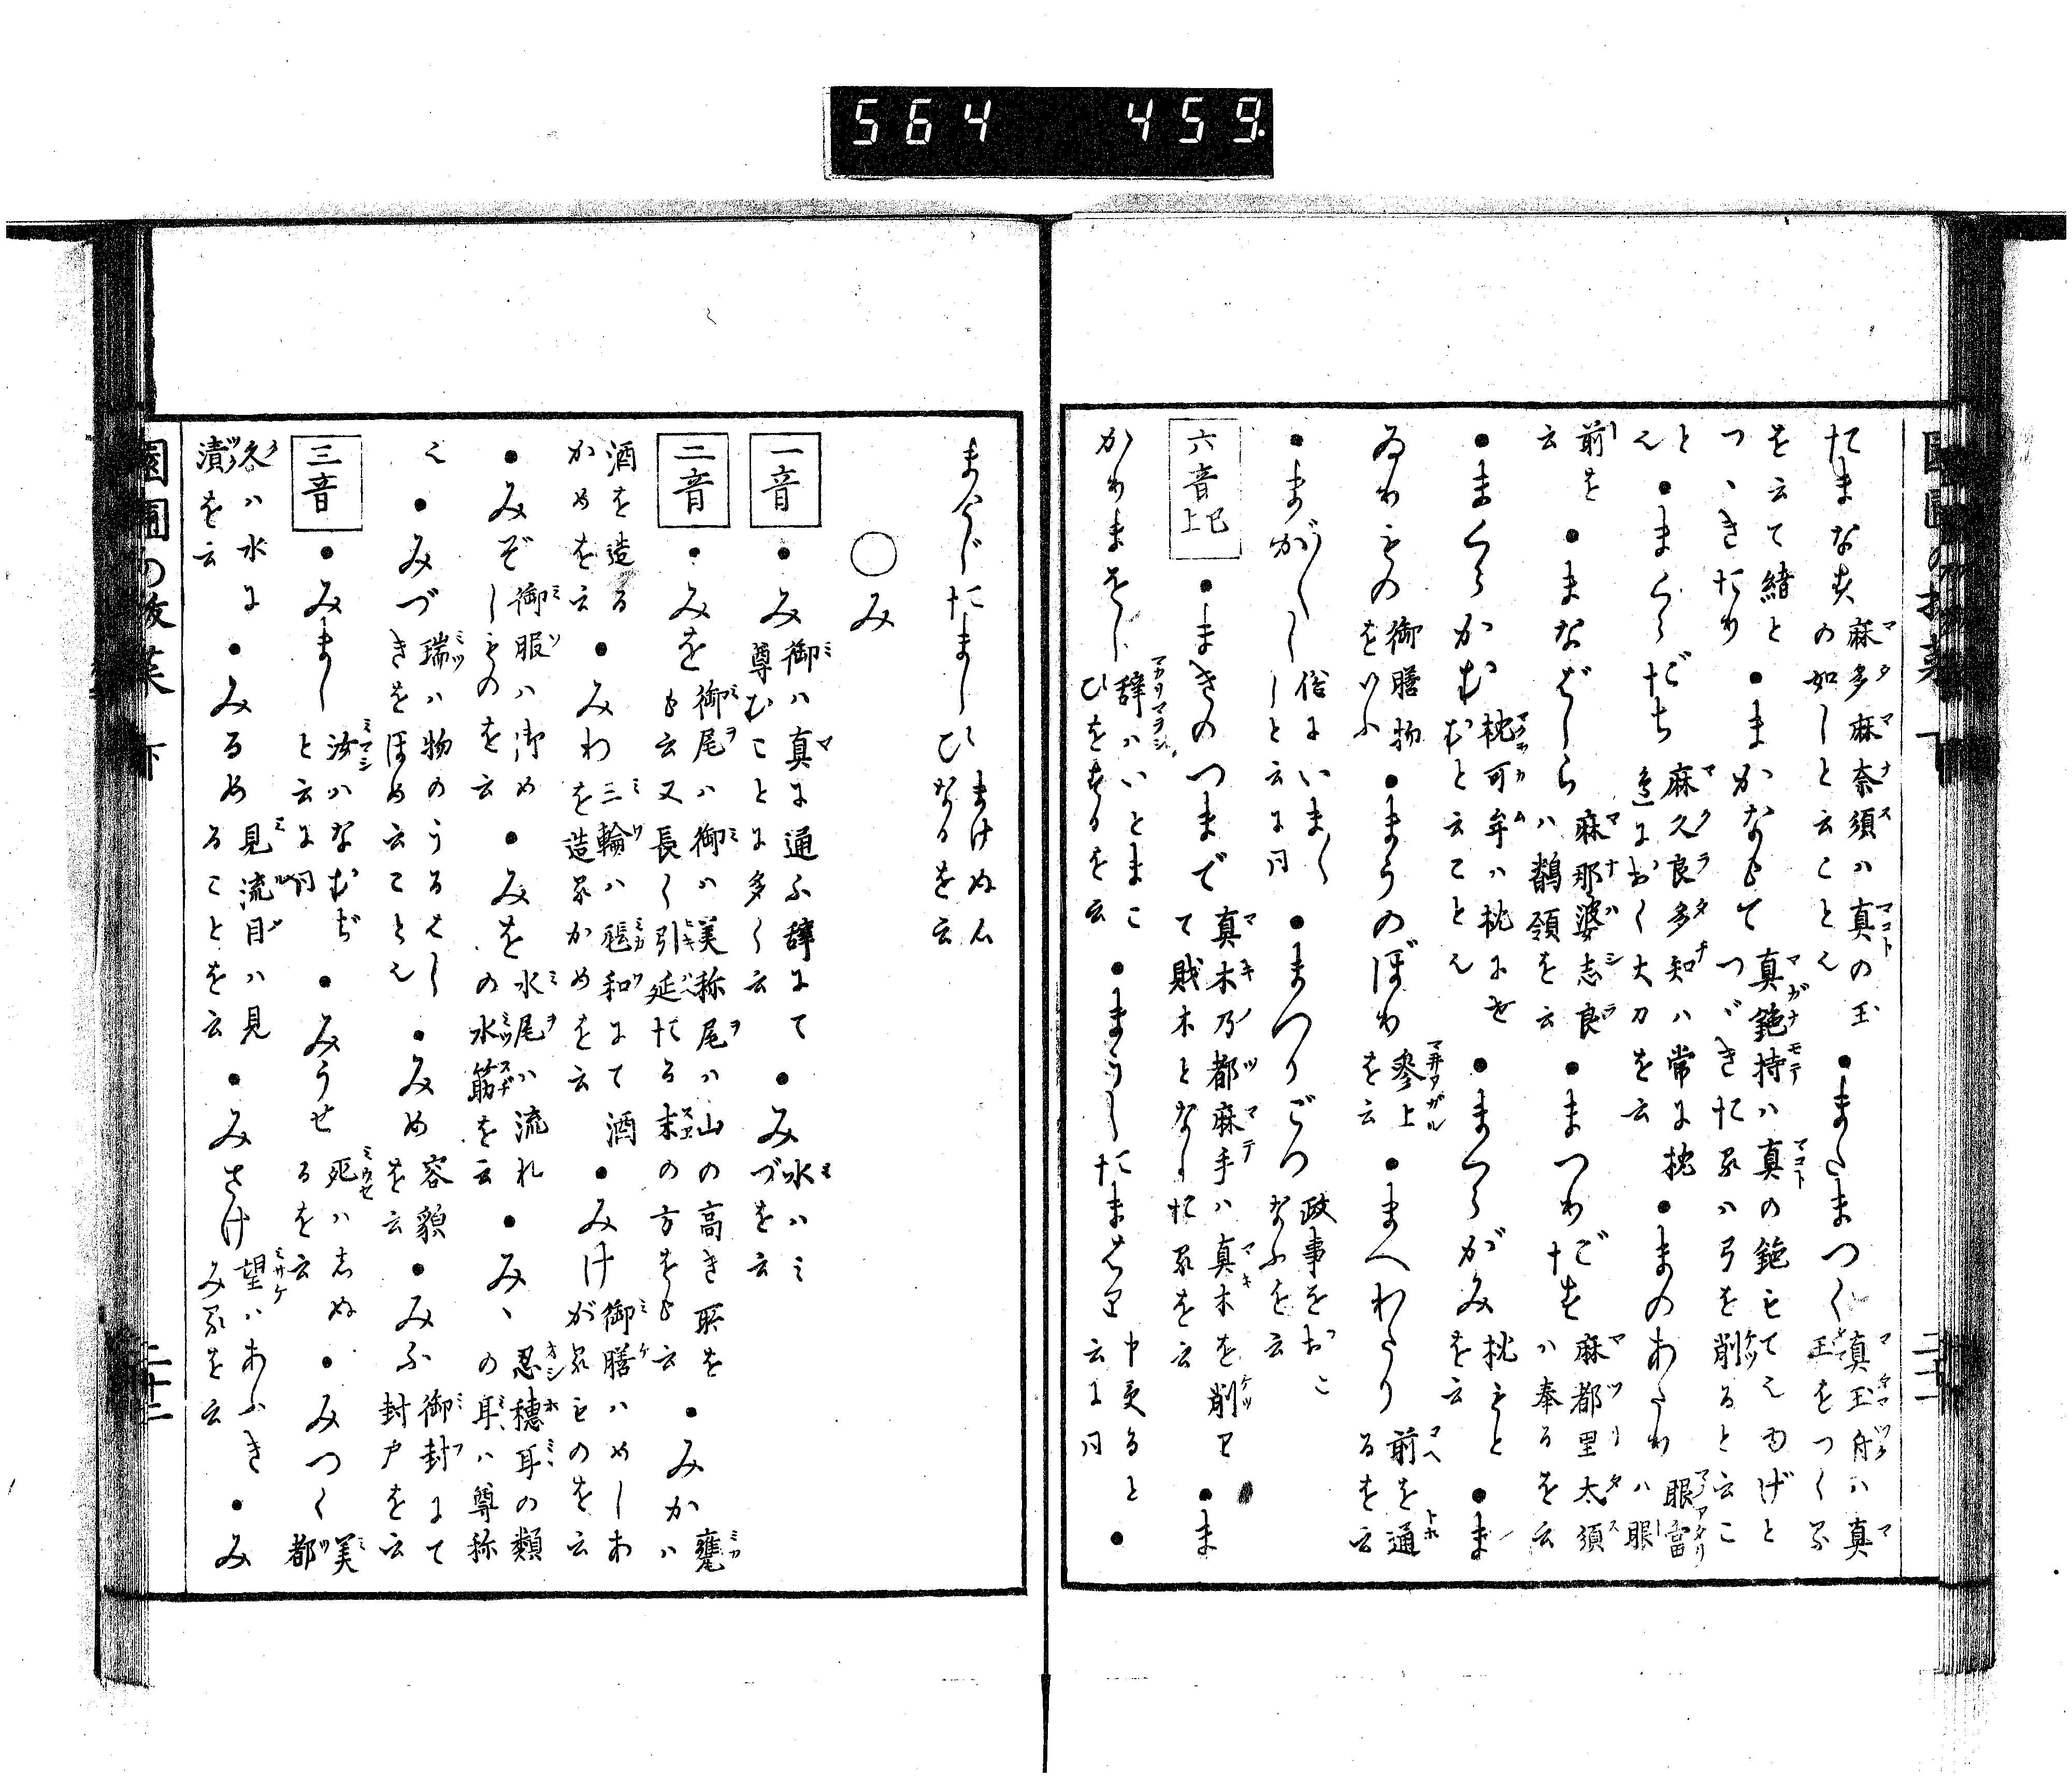 564 459.
たまなす 麻多麻奈須ハ真の玉の如しと云こと也 ●またまつく 真玉舟ハ真玉をつくる
を云て緒とつゝきたり ●まかなもて 真鉋持ハ真の鉋もて也由げとつゞきたるハ弓を削ると云こ
と也 ●まくらだち 麻久良多知ハ常に枕邊におく大刀を云 ●まのあたり 眼當ハ眼
前を云 ●まなばしら 麻那婆志良ハ鶺領を云 ●まつりだす 麻都里太須ハ奉るを云
●まくらかむ 枕可牟ハ枕にせむと云こと也 ●まくらがみ 枕もとを云 ●ま
ゐりもの 御膳物をいふ ●まうのぼり 参上を云 ●まへわたり 前を通るを云
●まが〱し 俗にいま〱しと云に同 ●まつりごつ 政事をおこなふを云
六音上巳 ●まきのつまで 真木乃都麻手ハ真木を削りて賤木となしたるを云 ●ま
かりまをし 辞ハいとまこひをするを云 ●まうしたまはく 申更ると云に同 ●
まくじたましひ まけぬ心なるを云
○み
一音 ●み 御ハ真に通ふ辞にて尊むことに多く云 ●みづ 水ハミづを云
二音 ●みを 御尾ハ御ハ美称尾ハ山の高き所をも云又長く引延たる末の方をも云 ●みか 甕ハ
酒を造るかめを云 ●みわ 三輪ハ甀和にて酒を造るかめを云 ●みけ 御膳ハめしあがるものを云
●みぞ 御服ハ御めしものを云 ●みを 水尾ハ流れの水筋を云 ●みゝ 忍穂耳の類の耳ハ尊称
也 ●みづ 瑞ハ物のうるはしきをほめ云こと也 ●みめ 容貌を云 ●みふ 御封にて封戸を云
三音 ●みまし 汝ハなむぢと云に同 ●みうせ 死ハしぬるを云 ●みつく 美都
久ハ水に漬を云 ●みるめ 見流目ハ見ることを云 ●みさけ 望ハあふきみるを云 ●み